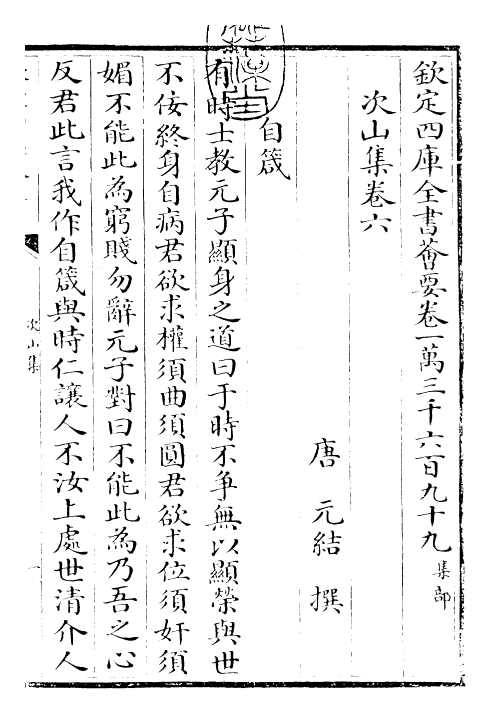 欽定四庫全書薈要卷一萬三千六百九十九集部
次山集卷六
唐元結撰
自箴
有時士教元子顯身之道曰于時不爭無以顯榮與世
不佞終身自病君欲求權須曲須圓君欲求位須奸須
媚不能此為窮賤勿辭元子對曰不能此為乃吾之心
反君此言我作自箴與時仁讓人不汝上處世清介人
次山集
一